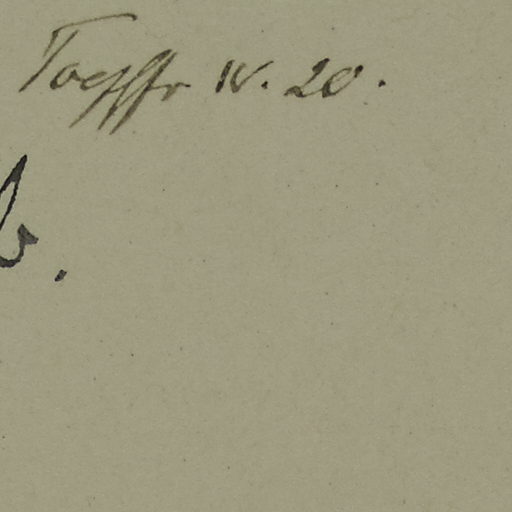 Toepffr IV. 20.
b.